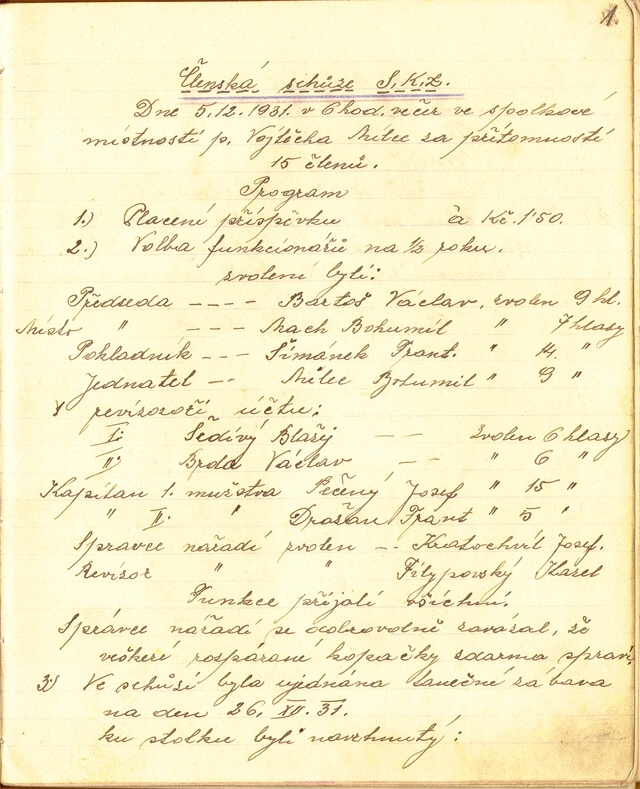 1.
Členská schůze S.K.Z.
Dne 5.12.1931. v 6 hod. večer ve spolkové
místností p. Vojtěcha Milec za přítomností
15 členů.
Program
1.) Placení příspěvku à Kč. 1'50.
2.) Volba funkcionářů na 1/2 roku.
zvolení byli:
Předseda ---- Bartoš Václav, zvolen 9 hl.
Místo " --- Mach Bohumil " 7 hlasy
Pokladník --- Šimánek Frant. " 14. "
Jednatel -- Milec Bohumil " 9 "
revizoři účtu:
I: Šedivý Blažej -- zvolen 6 hlasy
II: Brda Václav -- " 6 "
Kapitan 1. mužstva Pečený Josef " 15 "
" II. " Dražan Frant " 5 "
Spravce nářadí zvolen -- Kratochvíl Josef.
Revizor " " Filypovský Karel
Funkce přijalí všichní.
Správce nářadí se dobrovolně zavázal, že
veškeré rospárané kopačky zdarma spraví.
3) Ve schůzí byla ujednána taneční zabava
na den 26. XII. 31.
ku stolku bylí navrhnutý: